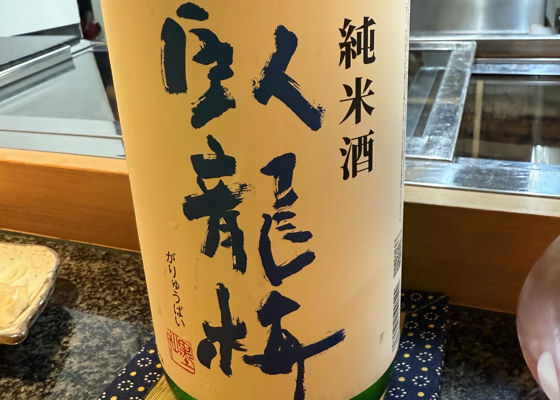 純米酒
臥龍梅
がりゅうばい